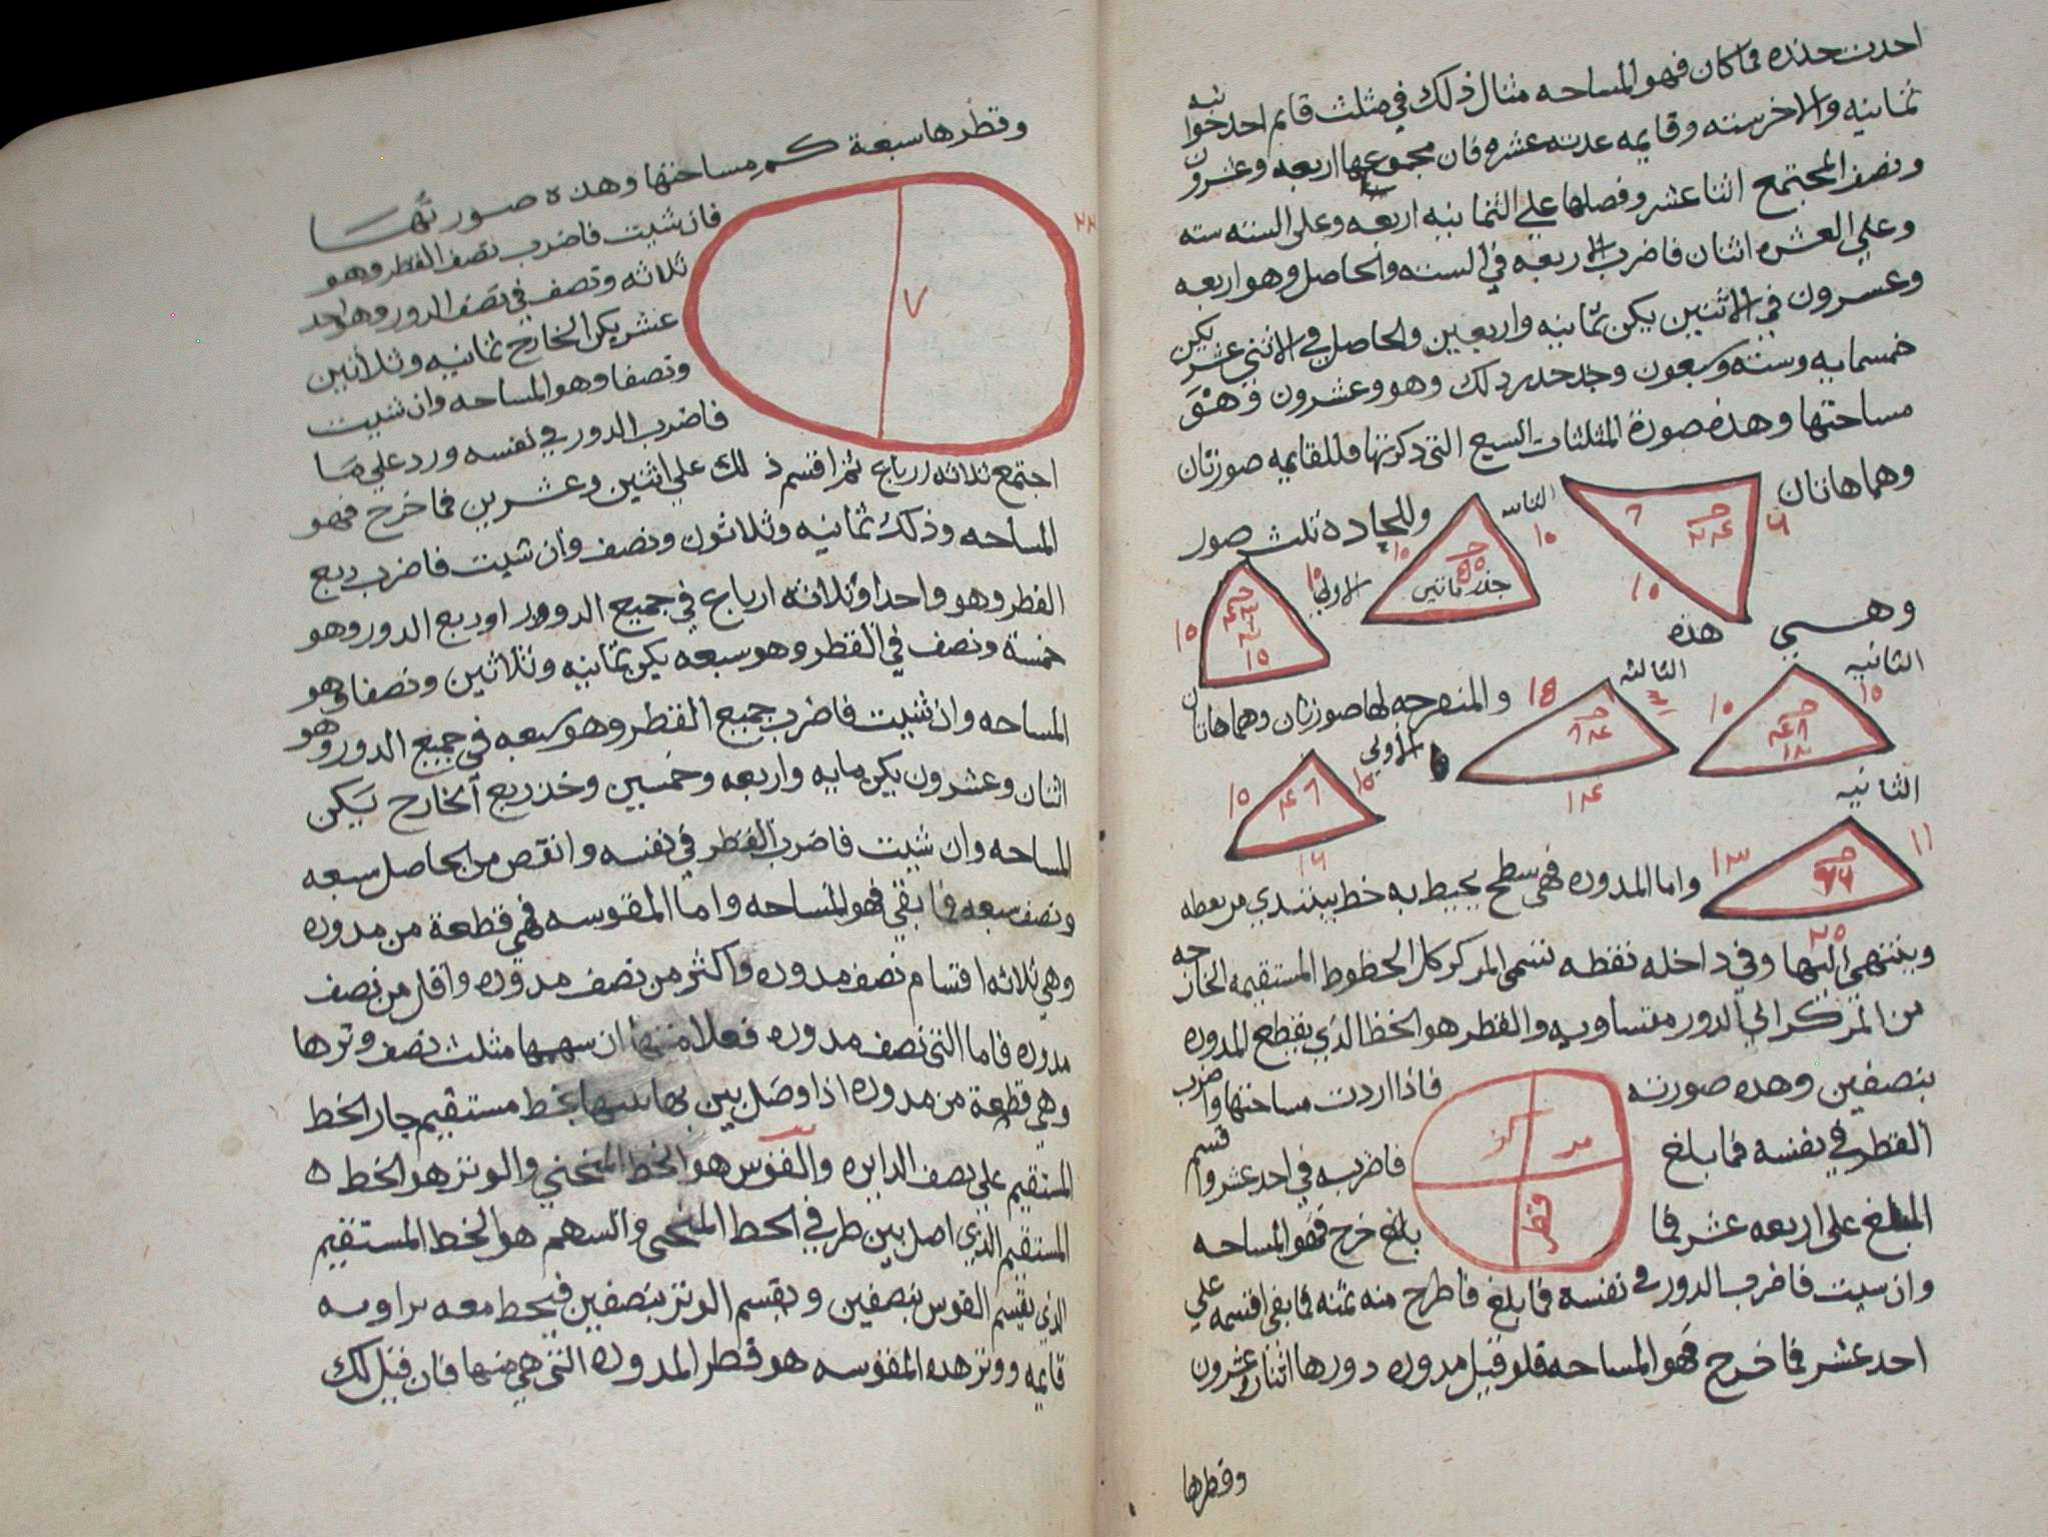 احدت جذره فما كان فهو المساحه مثال ذلك في مثلث قايم احد جوانبه
ثمانيه والاخر سته وقايمه عدته عشره فان مجموعها اربعه وعشرون
ونصف المجتمع اثنا عشر وفضلها علي الثمانيه اربعه وعلى السته سته
وعلي العشره اثنان فاضرب الاربعه في السته والحاصل وهو اربعه
وعسرون في الاثنين يكن ثمانيه واربعين والحاصل في الاثني عشر يكن
خمسمايه وسته وسبعون وخد جدر دلك وهو وعشرون فهو
مساحتها وهذه صورة المثلثات السبع التي ذكرتها فللقايمه صورتان
وهما هاتان
٦
١٠
١٠
١٠
جذر ماتين
وللحاده ثلث صور
وهي هذه
الاولي
١٥
١٥
١٥
الثانيه
١٠
١٠
١٢
الثالثه
١٤
والمنفرجه لها صورتان وهما هاتان
الاولي
١٥
١٥
الثانيه
١١
١٣
٢٥
واما المدوره فهي سطح يحيط به خط يبتدي من نقطه
وينتهي اليها وفي داخله نقطه تسمى المركز كل الخطوط المستقيمه الخارجه
من المركز الي الدور متساويه والقطر هو الخط الذي يقطع المدوره
بنصفين وهده صورته فاذا اردت مساحتها واضرب
قطر
القطر في نفسه فما بلغ فاضربه في احد عشر واقسم
المبلغ على اربعه عشر فما بلغ خرج فهو المساحه
وان سيت فاضرب الدور في نفسه فما بلغ فاطرح منه ثمنه فما بقي اقسمه علي
احد عشر فما خرج فهو المساحه فلو قيل مدوره دورها اثنان وعشرون
وقطرها
وقطرها سبعة كم مساحتها وهذه صورتها
٢٢
٧
فان شيت فاضرب نصف القطر وهو
ثلاثه ونصف في نصف الدور وهو احد
عشر يكن الخارج ثمانيه وثلاثين
ونصفا وهو المساحه وان شيت
فاضرب الدور في نفسه ورد علي ما
اجتمع ثلاثه ارباع ثم اقسم ذلك علي اثنين وعشرين فما خرج فهو
المساحه وذلك ثمانيه وثلاثون ونصف وان شيت فاضرب ربع
القطر وهو واحد وثلاثه ارباع في جميع الدور او ربع الدور وهو
خمسة ونصف في القطر وهو سبعه يكن ثمانيه وثلاثين ونصفا وهو
المساحه وان شيت فاضرب جميع القطر وهو سبعه في جميع الدور وهو
اثنان وعشرون يكن مايه واربعه وخمسين وخذ ربع الخارج يكن
المساحه وان شيت فاضرب القطر في نفسه وانقص من الحاصل سبعه
ونصف سبعه فما بقي فهو المساحه واما المقوسه فهي قطعة من مدوره
وهي ثلاثه اقسام نصف مدوره واكثر من نصف مدوره واقل من نصف
مدوره فاما التي نصف مدوره فعلامتها ان سهمها مثلث نصف وترها
وهي قطعة من مدوره اذا وصل بين نهايتيها بخط مستقيم جاز الخط
المستقيم على نصف الدايره والقوس هو الخط المنحني والوتر هو الخط
المستقيم الذي اصل بين طرفي الخط المنحني والسهم هو الخط المستقيم
الذي يقسم القوس بنصفين ويقسم الوتر بنصفين فيحط معه براويه
قايمه ووتر هده المقوسه هو قطر المدوره التي هي منها فان قيل لك